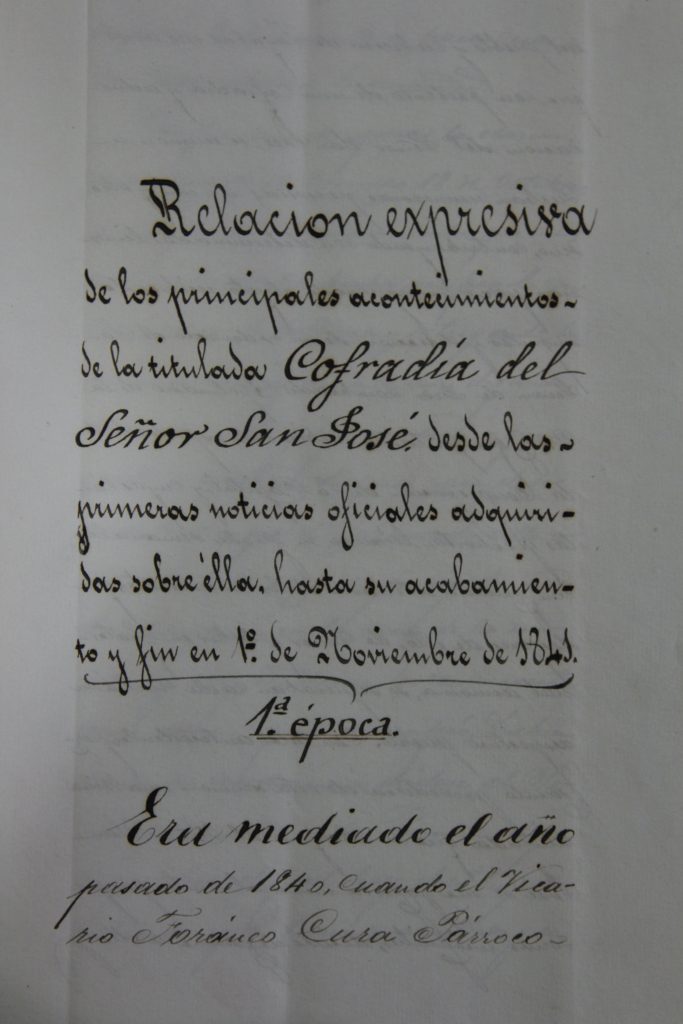 Relacion expresiva
de los principales acontecimientos-
de la titulada Cofradía del
Señor San José, desde las-
primeras noticias oficiales adquiri-
das sobre élla, hasta su acabamien-
to y fin en 1º. de Noviembre de 1841.
1.ª época.
Era mediado el año
pasado de 1840, cuando el Vica-
rio Foráneo Cura Párroco-